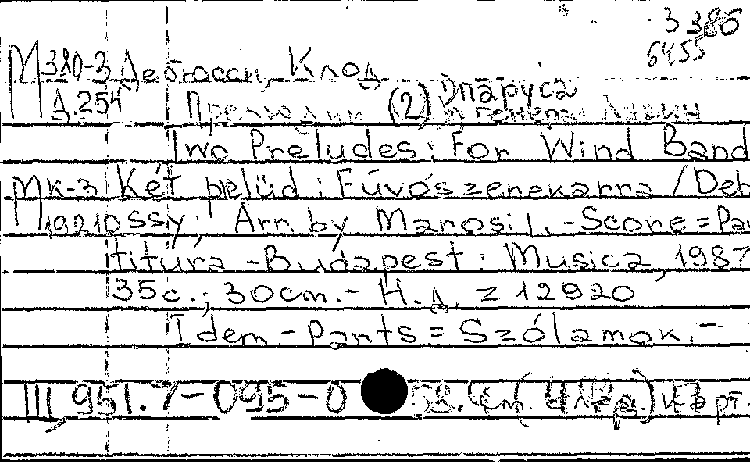 3386
6455
М 380-3 Дебюсси, Клод
Д.254 Прелюдии (2) "Паруса"
Two Preludes: For Wind Band
МК-3 Két prelüd: Fúvószenekarra / Deb
19210 ussy; Arr. by Marosi L. - Score = Par
titúra - Budapest: Musica, 1987
35с.; 30cm. - Н.д. Z 12920
Idem - Parts = Szólamok. -
III, 951.7-095-0